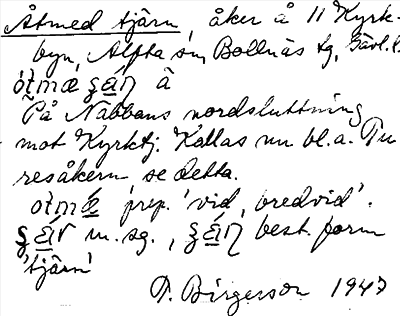 Åtmed tjärn, åker å 11 Kyrk-
byn, Alfta sn, Bollnäs tg, Gävl. l.
å
På Nabbans nordsluttning
mot Kyrktj. Kallas nu bl. a. Tu
resåkern se detta.
prep. 'vid, bredvid'.
m. sg., best. form
'tjärn'
Birgerson 1947